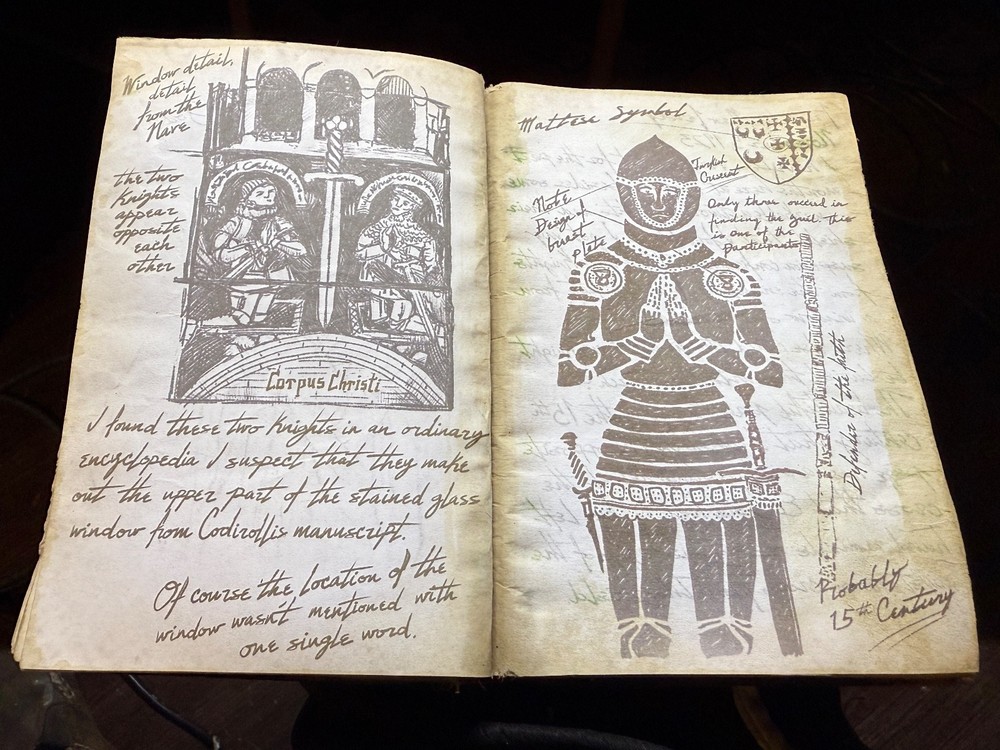 Window detail,
detail
from the
Nave
the two
Knights
appear
opposite
each
other
Corpus Christi
I found these two Knights in an ordinary
encyclopedia I suspect that they make
out the upper part of the stained glass
window from Codirollis manuscript.
Of course the location of the
window wasn't mentioned with
one single word.
Maltese Symbol
Turkish
Note
Design of
breast
plate
Only three succed in
finding the grail. this
is one of the
Participants
Defender of the faith
Probably
15th Century